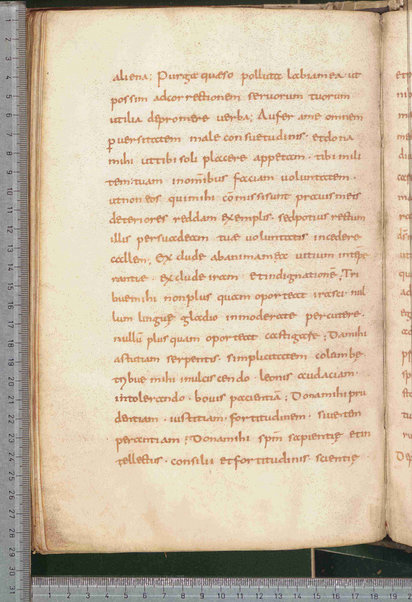 aliena; Purga queso polluta labia mea ut
possim ad correctionem servorum tuorum
utilia depromere verba; Aufer a me omnem
pversitatem male consuetudinis. et dona
mihi ut tibi soli placere appetam. tibi mili
tem. tuam in omnibus faciam voluntatem.
ut non eos qui mihi comissi sunt pravis meis
deteriores reddam exemplis. sed potius rectum
illis persuadeam tuae voluntatis incedere
callem; exclude ab anima mea vitium
exclude iram et indignatione; Tri
bue mihi non plus quam oporteat irasci nul
lum linguę gladio inmoderate percutere.
nullū plus quam oporteat castigare; Da mihi
astutiam serpentis. simplicitatem columbę.
tribue mihi leonis audaciam.
intolerando. bovis pacientiā; Dona mihi pru
dentiam. iustitiam. fortitudinem.
Dona mihi spm sapientię et in
tellectus. consilii et fortitudinis. scientię